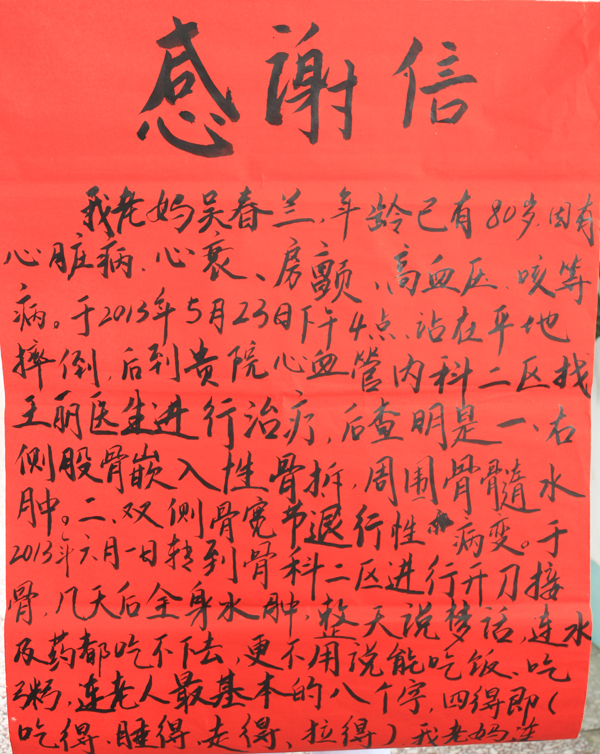 感谢信
我老妈吴春兰,年龄已有80岁,因有
心脏病、心衰、房颤、高血压、咳等
病。于2013年5月23日下午4点,站在平地
摔倒,后到贵院心血管内科二区找
王丽医生进行治疗,后查明是一、右
侧股骨嵌入性骨拆,周围骨髓水
肿。二、双侧骨宽节退行性病变。于
2013年六月一日转到骨科二区进行开刀接
骨,几天后全身水肿,整天说梦话,连水
及药都吃不下去,更不用说能吃饭、吃
粥,连老人最基本的八个字,四得即(
吃得、睡得、走得、拉得)我老妈连